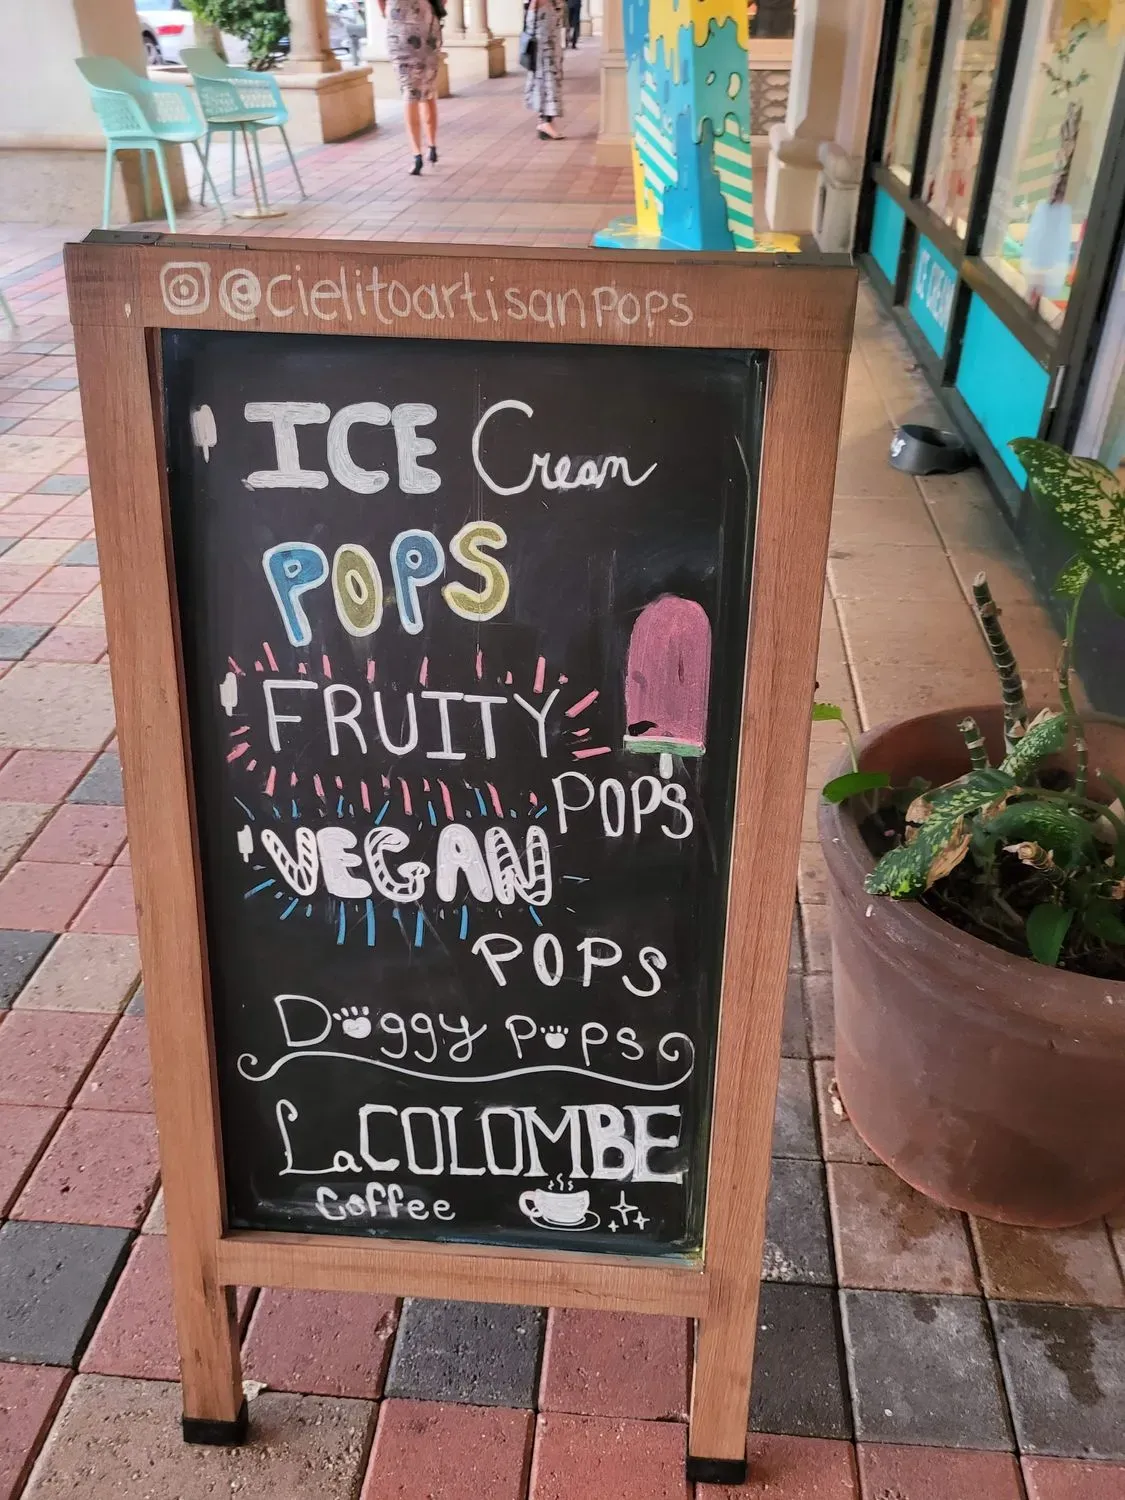 @cielitoartisanpops
ICE Cream
POPS
FRUITY
POPS
VEGAN
POPS
Doggy Pops
La COLOMBE
Coffee
ICE CREAM